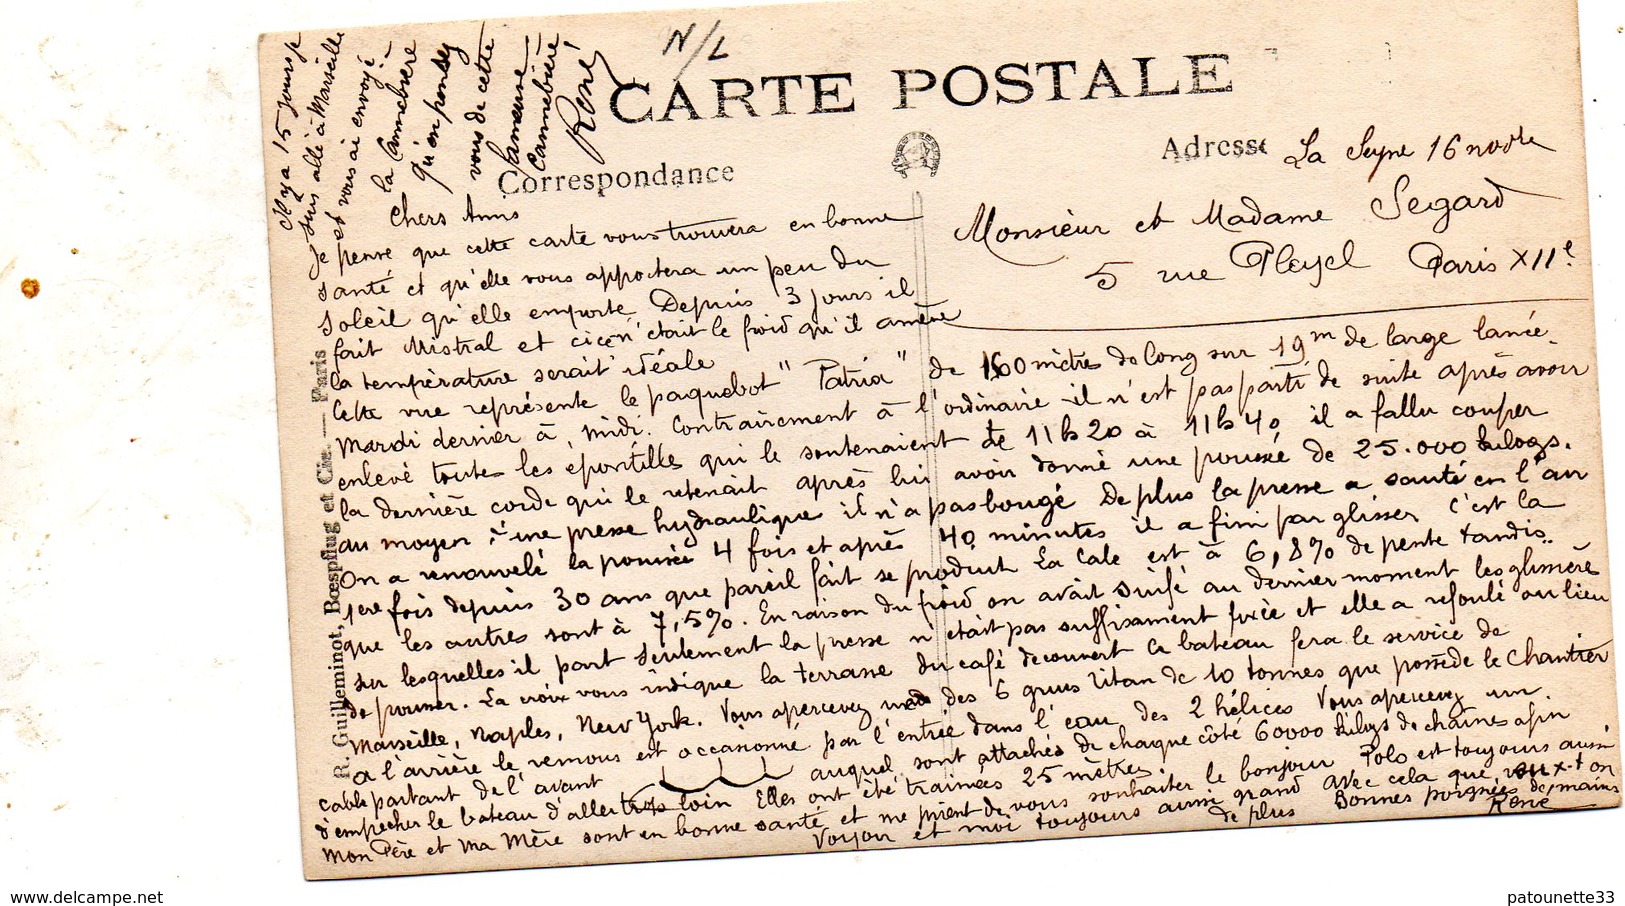 N/L
CARTE POSTALE
Correspondance
Adresse
La Seyne 16 novbre
Monsieur et Madame Segard
5 rue Pleyel Paris XIIe
Il y a 15 jours je
suis allé à Marseille
et vous ai envoyé
la Cannebière
Qu'en pensez
vous de cette
fameuse
Cannebière
René
Chers Amis
Je pense que cette carte vous trouvera en bonne
santé et qu'elle vous apportera un peu du
soleil qu'elle emporte. Depuis 3 jours il
fait Mistral et si ce n'était le froid qu'il amène
la température serait idéale
Cette vue représente le paquebot "Patria" de 160 mètres de long sur 19m de large lancé
Mardi dernier à midi. Contrairement à l'ordinaire il n'est pas parti de suite après avoir
enlevé toutes les épontilles qui le soutenaient de 11h20 à 11h40 il a fallu couper
la dernière corde qui le retenait après lui avoir donné une poussée de 25.000 kilogs.
au moyen d'une presse hydraulique il n'a pas bougé De plus la presse a sauté en l'air
On a renouvelé la poussée 4 fois et après 40 minutes il a fini par glisser C'est la
1ere fois depuis 30 ans que pareil fait se produit La cale est à 6,8% de pente tandis
que les autres sont à 7,5%. En raison du froid on avait suifé au dernier moment les glissière
sur lesquelles il part seulement la presse n'était pas suffisament fixée et elle a refoulé au lieu
de pousser. La croix vous indique la terrasse du café découvert Ce bateau fera le service de
Marseille, Naples, New York. Vous apercevez des 6 grues titan de 10 tonnes que possède le Chantier
A l'arrière le remous est occasionné par l'entrée dans l'eau des 2 hélices Vous apercevez un
cable partant de l'avant auquel sont attachés de chaque côté 60000 kilogs de chaînes afin
d'empecher le bateau d'aller trop loin Elles ont été trainées 25 mètres
Mon Père et ma Mère sont en bonne santé et me prient de vous souhaiter le bonjour Polo est toujours aussi
Voyou et moi toujours aussi grand avec cela que x-t on
de plus Bonnes poignées de mains
René
R. Guilleminot, Bœspflug et Cie. — Paris
patounette33